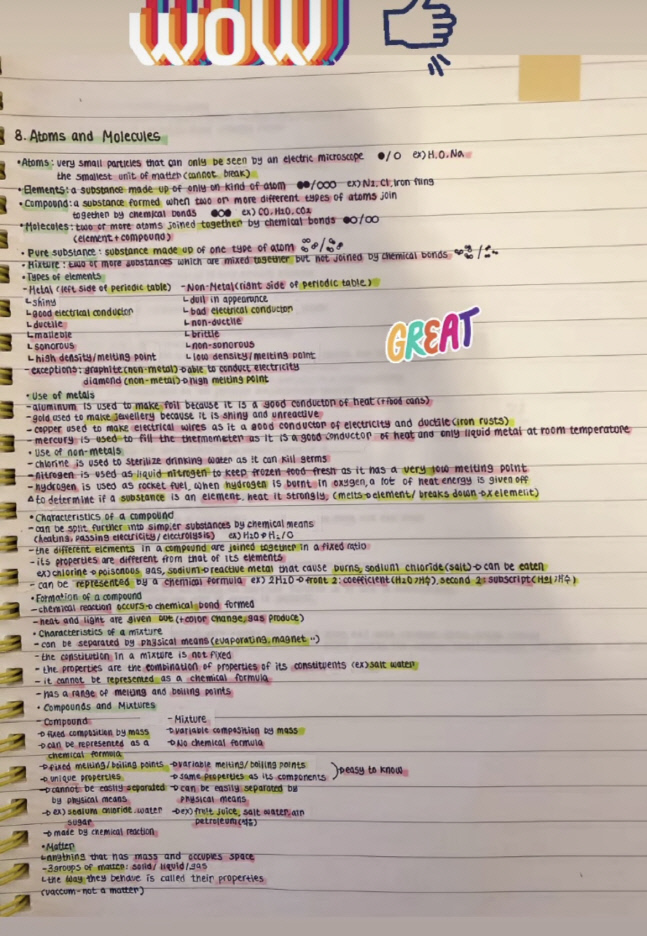 WOW
8. Atoms and Molecules
•Atoms: very small particles that can only be seen by an electric microscope ●/○ ex) H, O, Na
the smallest unit of matter (cannot break)
•Elements: a substance made up of only on kind of atom ●●/○○○ ex) N₂, Cl, Iron fling
•Compound: a substance formed when two or more different types of atoms join
together by chemical bonds ●○● ex) CO, H₂O, CO₂
•Molecules: two or more atoms joined together by chemical bonds ●○/○○
(element + compound)
•Pure substance: substance made up of one type of atom
•Mixture: two or more substances which are mixed together but not joined by chemical bonds
•Types of elements
-Metal (left side of periodic table) -Non-Metal (right side of periodic table)
↳shiny ↳dull in appearance
↳good electrical conductor ↳bad electrical conductor
↳ductile ↳non-ductile
↳malleble ↳brittle
↳sonorous ↳non-sonorous
↳high density/melting point ↳low density/melting point
GREAT
-exceptions: graphite (non-metal)→able to conduct electricity
diamond (non-metal)→high melting point
•Use of metals
-aluminum is used to make foil because it is a good conductor of heat (+food cans)
-gold used to make jewellery because it is shiny and unreactive
-copper used to make electrical wires as it a good conductor of electricity and ductile (iron rusts)
-mercury is used to fill the thermometer as it is a good conductor of heat and only liquid metal at room temperature
•Use of non-metals
-chlorine is used to sterilize drinking water as it can kill germs
-nitrogen is used as liquid nitrogen to keep frozen food fresh as it has a very low melting point
-hydrogen is used as rocket fuel, when hydrogen is burnt in oxygen, a lot of heat energy is given off
△to determine if a substance is an element, heat it strongly, (melts→element/ breaks down→x element)
•Characteristics of a compound
-can be split further into simpler substances by chemical means
(heating, passing electricity/electrolysis) ex) H₂O→H₂/O
-the different elements in a compound are joined together in a fixed ratio
-its properties are different from that of its elements
ex) chlorine→poisonous gas, sodium→reactive metal that cause burns, sodium chloride (salt)→can be eaten
-can be represented by a chemical formula ex) 2H₂O→front 2: coefficient (H₂O 개수), second 2: subscript (H의 개수)
•Formation of a compound
-chemical reaction occurs→chemical bond formed
-heat and light are given out (+color change, gas produce)
•Characteristics of a mixture
-can be separated by physical means (evaporating, magnet ··)
-the constitution in a mixture is not fixed
-the properties are the combination of properties of its constituents (ex) salt water)
-it cannot be represented as a chemical formula
-has a range of melting and boiling points
•Compounds and Mixtures
-Compound -Mixture
→fixed composition by mass →variable composition by mass
→can be represented as a →No chemical formula
chemical formula
→fixed melting/boiling points →variable melting/boiling points
→unique properties →same properties as its components )→easy to know
→cannot be easily separated →can be easily separated by
by physical means physical means
→ex) sodium chloride, water →ex) fruit juice, salt water, air
sugar petroleum
→made by chemical reaction
•Matter
↳anything that has mass and occupies space
-3groups of matter: solid/ liquid/ gas
↳the way they behave is called their properties
(vaccum-not a matter)